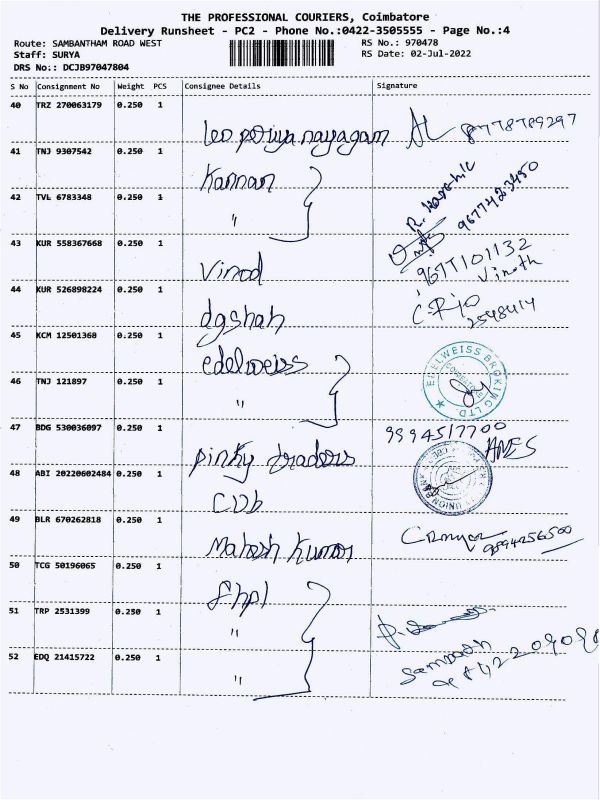 THE PROFESSIONAL COURIERS, Coimbatore
Delivery Runsheet - PC2 - Phone No.:0422-3505555 - Page No.:4
Route: SAMBANTHAM ROAD WEST RS No.: 970478
Staff: SURYA RS Date: 02-Jul-2022
DRS No.: DCJB97047804
S No Consignment No Weight PCS Consignee Details Signature
40 TRZ 270063179 0.250 1
leo poriya nayagam 8778789297
41 TNJ 9307542 0.250 1
Kannan
42 TVL 6783348 0.250 1
" 9677423450
43 KUR 558367668 0.250 1
Vinod 9677101132
Vinoth
44 KUR 526898224 0.250 1
dgshah 2548414
45 KCM 12501360 0.250 1
edelweiss
EDELWEISS BROKING LTD
46 TNJ 121897 0.250 1
"
47 BDG 530036097 0.250 1
pinky traders 9994517700
48 ABI 20220602484 0.250 1
CUb
UNION BANK
49 BLR 670262818 0.250 1
Mahesh Kumar 9894256500
50 TCG 50196065 0.250 1
Shpl
51 TRP 2531399 0.250 1
"
52 EDQ 21415722 0.250 1
" Sampath